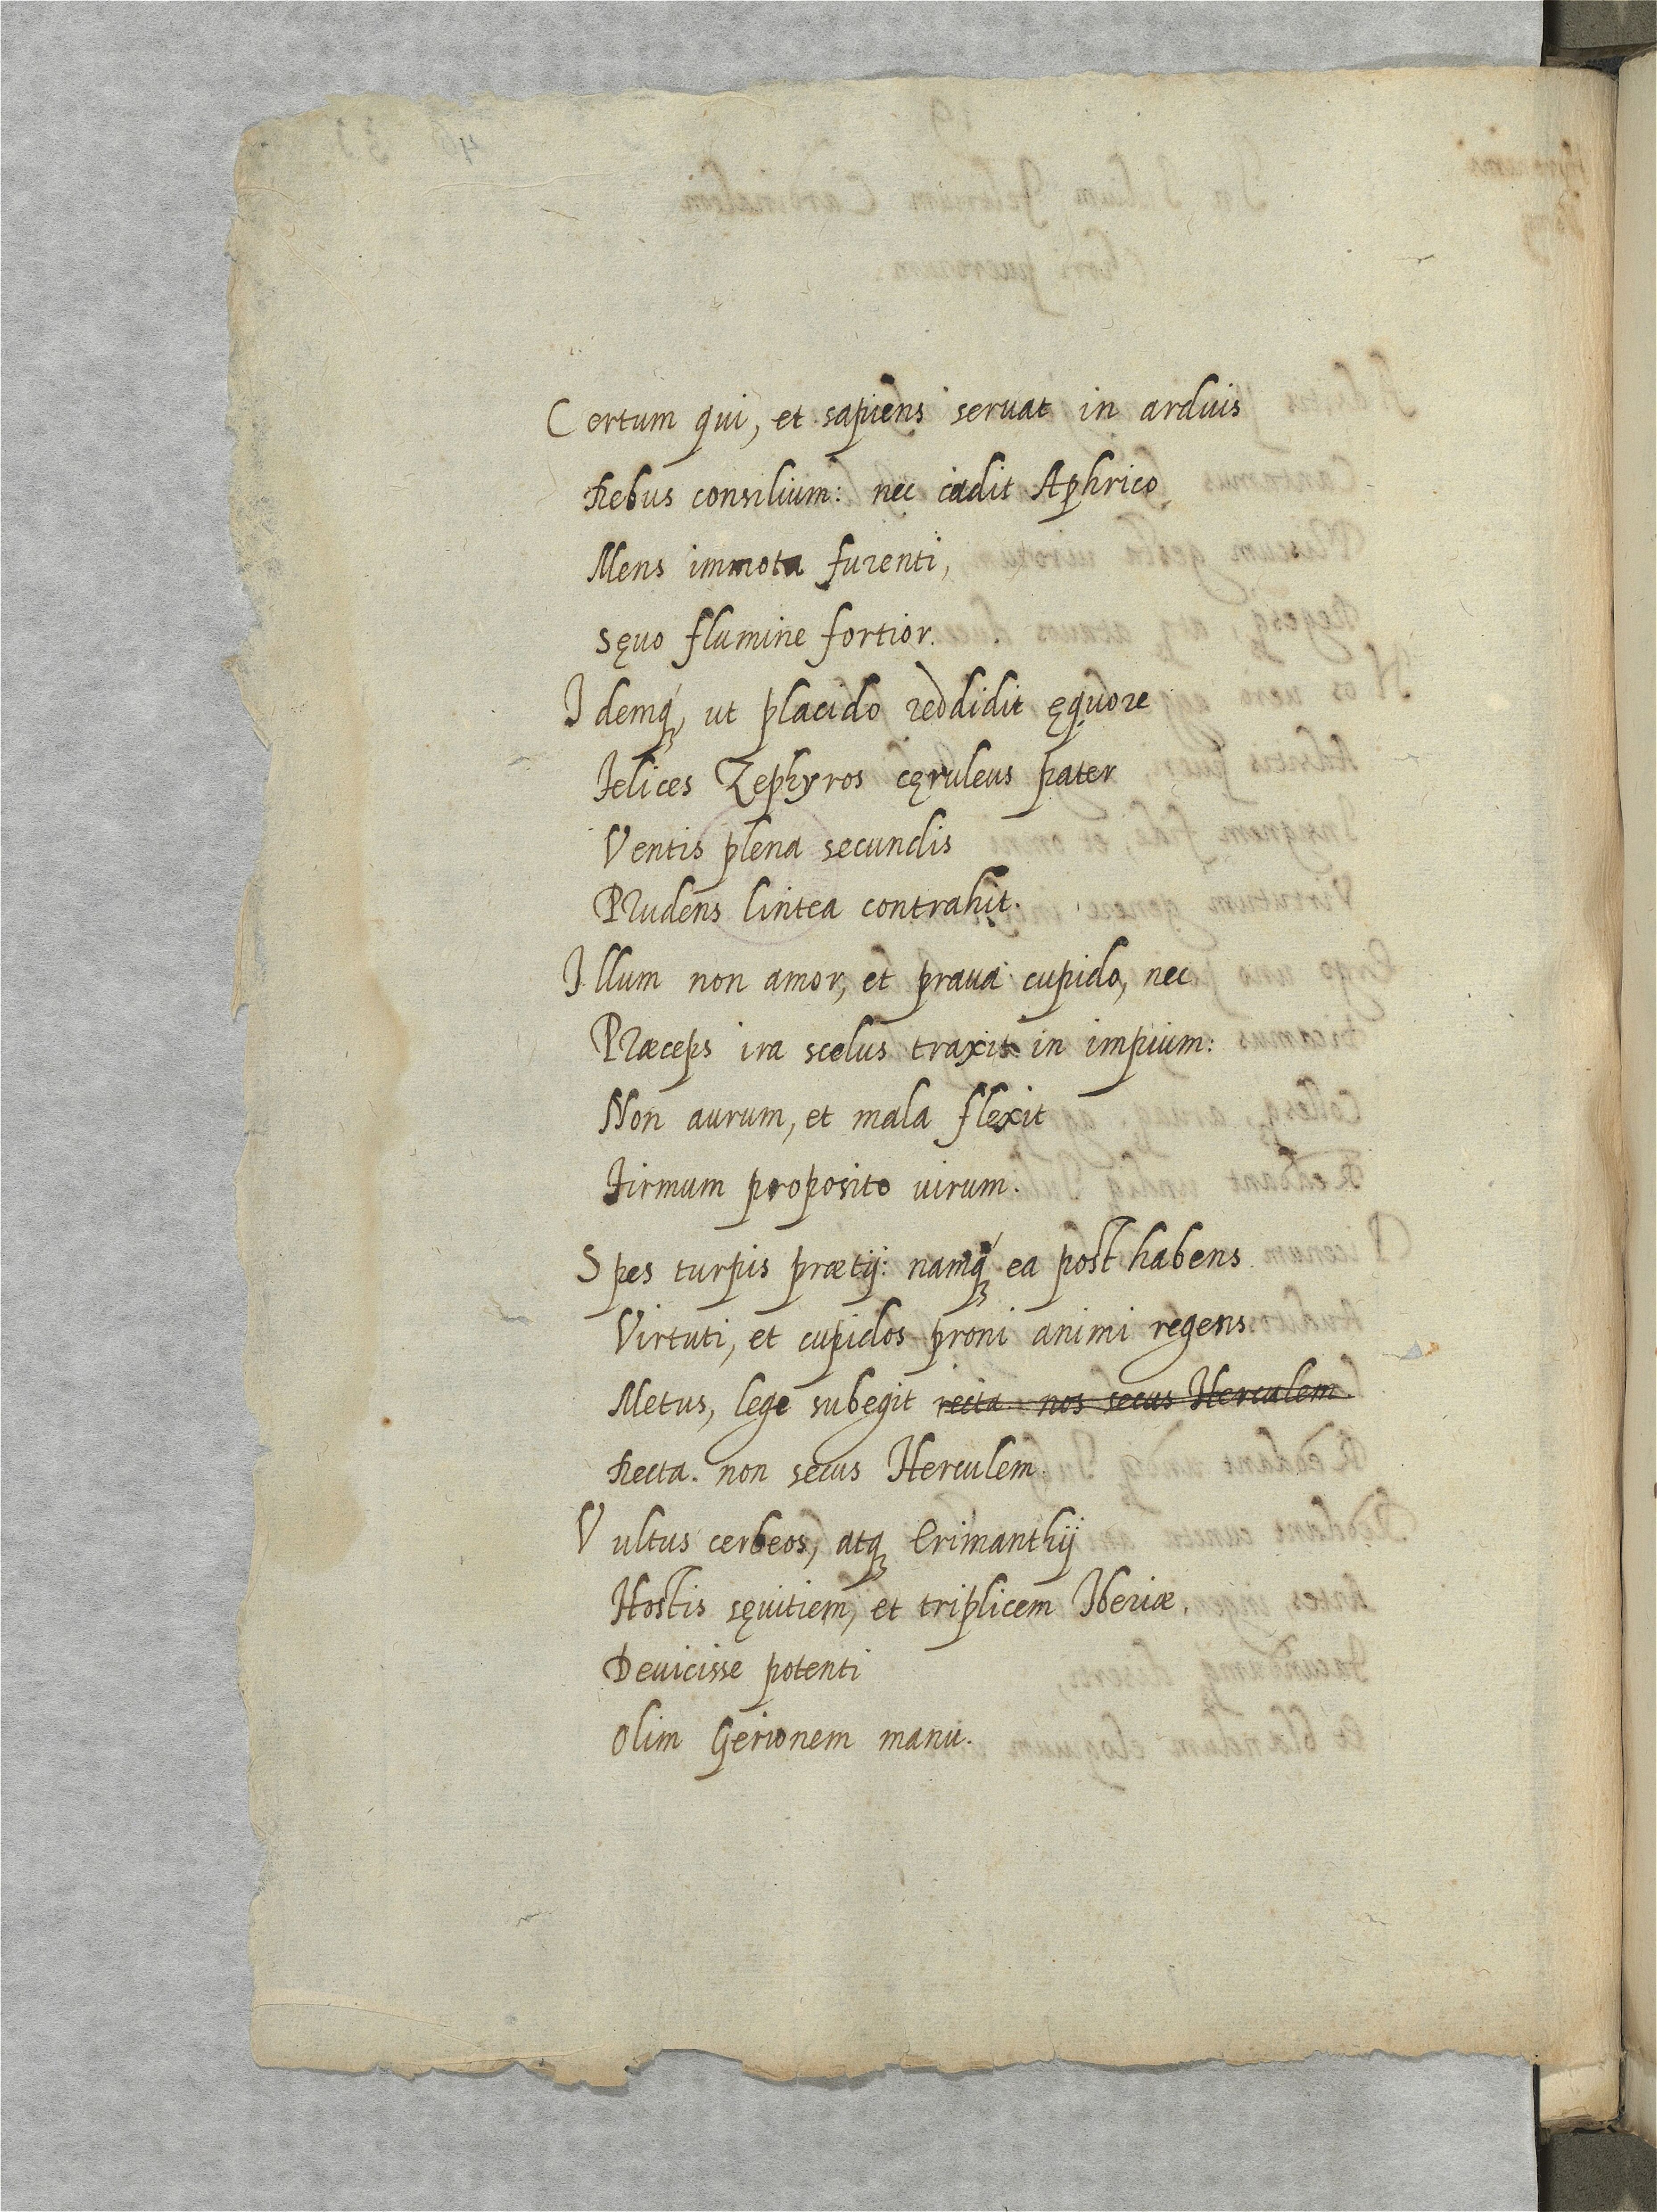 Certum qui, et sapiens seruat in arduis
Rebus consilium: nec cadit Aphrico
Mens immota furenti,
sęuo flumine fortior.
Idemq́ꝫ, ut placido reddidit ęquore
Felices Zephyros cęruleus pater
Ventis plena secundis
Prudens lintea contrahit.
Illum non amor, et praua cupido, nec
Præceps ira scelus traxit in impium:
Non aurum, et mala flexit
Firmum proposito uirum.
Spes turpis prætij: namq́ꝫ ea post habens
Virtuti, et cupidos proni animi regens
Metus, lege subegit recta nos secus Herculem
Recta. non secus Herculem.
Vultus cerbeos, atqꝫ Erimanthij
Hostis sęuitiem, et triplicem Iberiæ.
Deuicisse potenti
Olim Gerionem manu.